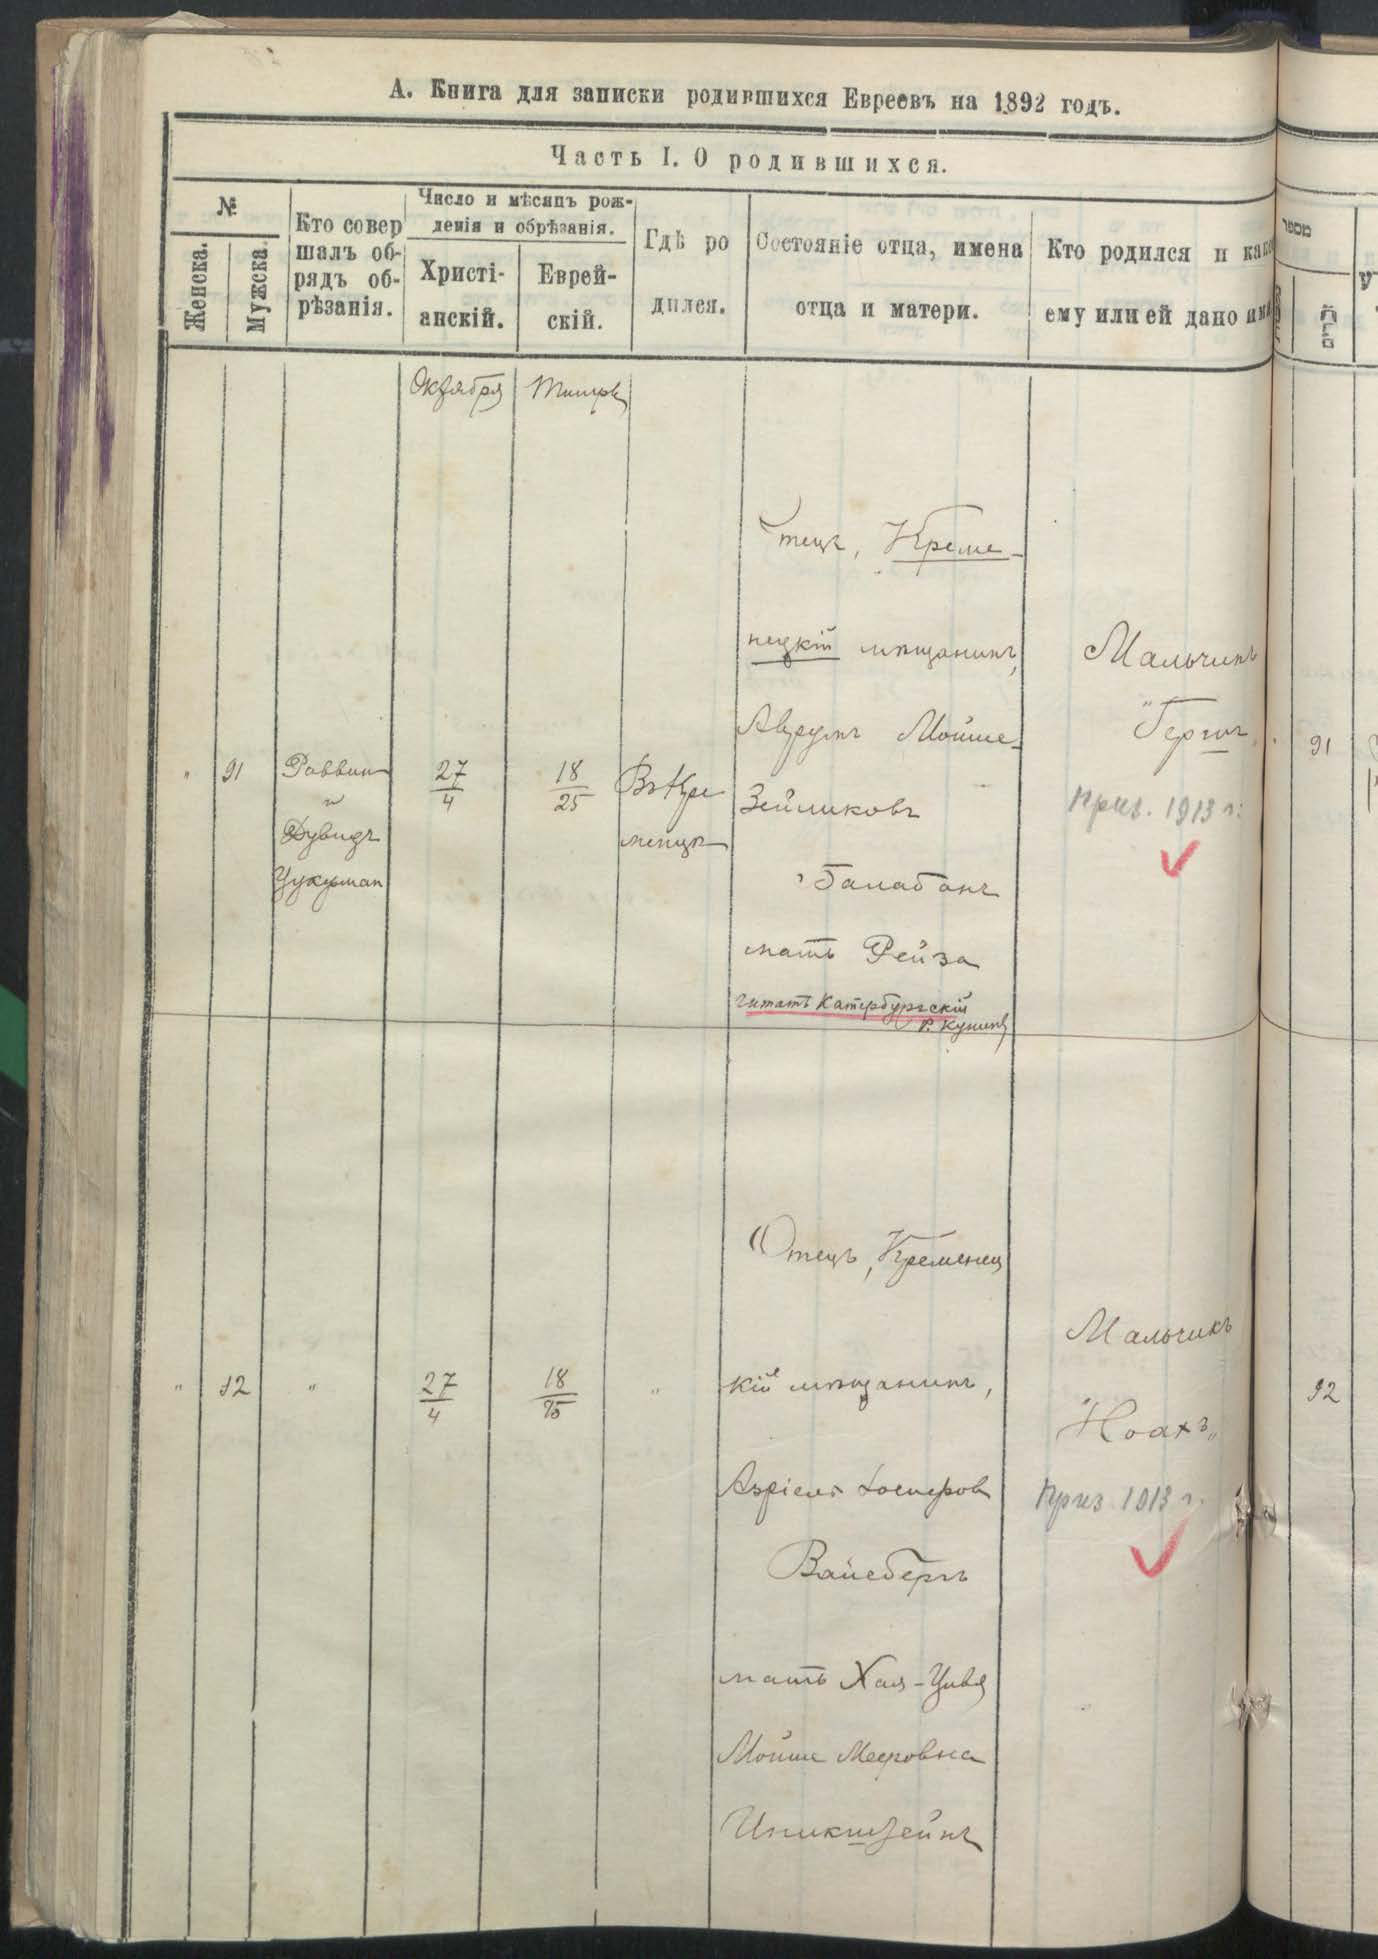 А. Книга для записки родившихся Евреевъ на 1892 годъ.
Часть I. О родившихся.
№
Женска.
Мужска.
Кто совер
шалъ об-
рядъ об-
рѣзанія.
Число и мѣсяцъ рож-
денія и обрѣзанія.
Христі-
анскій.
Еврей-
скій.
Гдѣ ро
дился.
Состояніе отца, имена
отца и матери.
Кто родился и како
ему или ей дано имя
מספר
Октября
Тишре
91
Раввин
и
Дувидъ
Цукерман
27
4
18
25
Въ Кре
менцѣ
тецъ, Креме-
нецкій мѣщанинъ,
Аврумъ Мойше-
Зейликовъ
Балабанъ
мать Рейза
Читать Катербургскій
Р.
Мальчикъ
приз. 1913 г.
91
"
92
"
27
4
18
25
"
Отецъ, Кременец
кій мѣщанинъ,
Азріель
Вайсбергъ
мать Хая-Цивя
Мойше Мееровна
Мальчикъ
"Ноахъ"
приз. 1913 г.
92